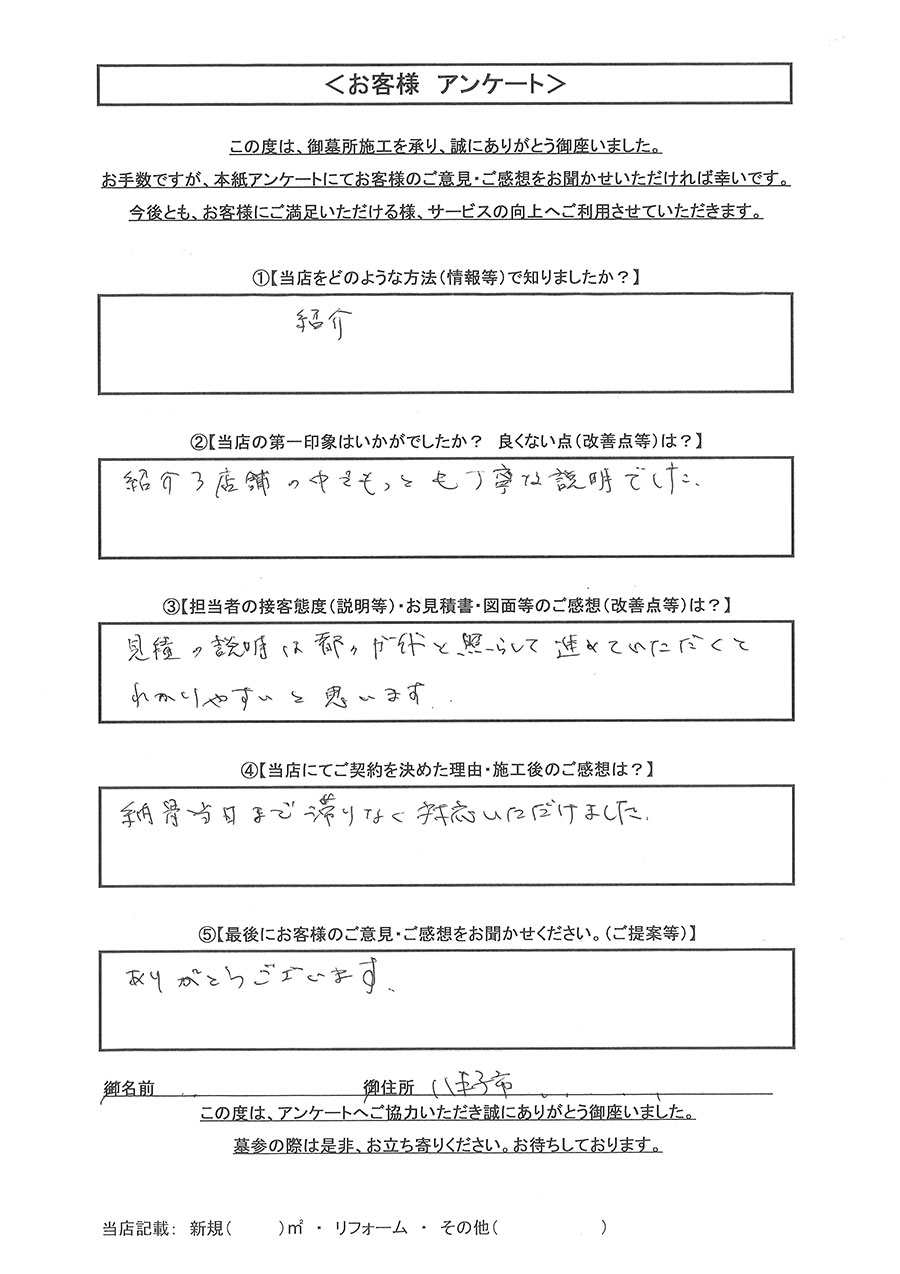 ＜お客様　アンケート＞
この度は、御墓所施工を承り、誠にありがとう御座いました。
お手数ですが、本紙アンケートにてお客様のご意見・ご感想をお聞かせいただければ幸いです。
今後とも、お客様にご満足いただける様、サービスの向上へご利用させていただきます。
①【当店をどのような方法（情報等）で知りましたか？】
紹介
②【当店の第一印象はいかがでしたか？　良くない点（改善点等）は？】
紹介3店舗の中でもっとも丁寧な説明でした.
③【担当者の接客態度（説明等）・お見積書・図面等のご感想（改善点等）は？】
見積の説明は都のガイドと照らして進めていただくと
わかりやすいと思います.
④【当店にてご契約を決めた理由・施工後のご感想は？】
納骨当日まで滞りなく対応いただけました.
⑤【最後にお客様のご意見・ご感想をお聞かせください。（ご提案等）】
ありがとうございます.
御名前　御住所　八王子市
この度は、アンケートへご協力いただき誠にありがとう御座いました。
墓参の際は是非、お立ち寄りください。お待ちしております。
当店記載：　新規（　　）㎡　・　リフォーム　・　その他（　　　　）